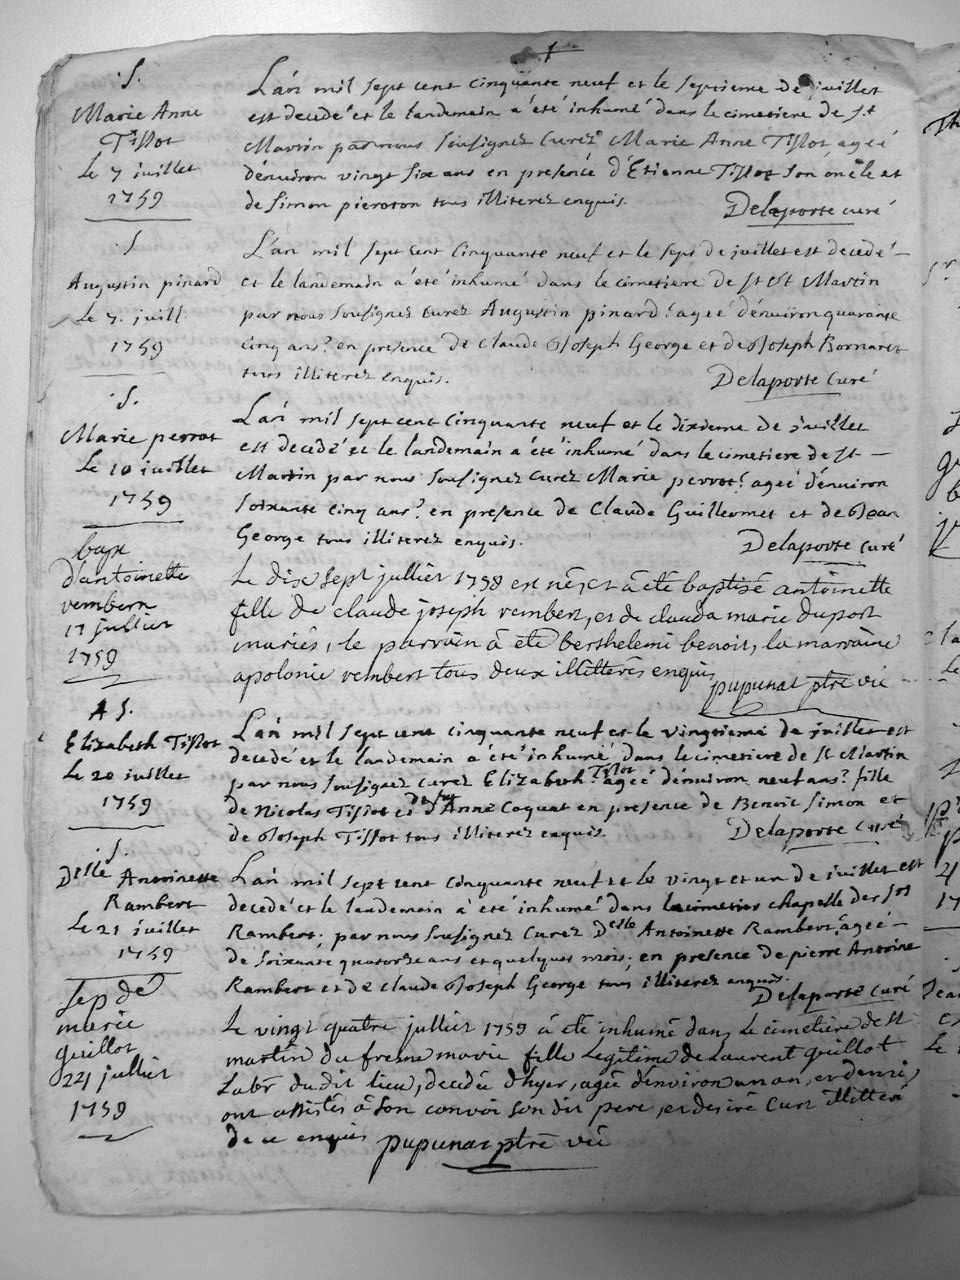 S.
Marie Anne
Tissot
Le 7 juillet
1759
L'an mil sept cent cinquante neuf et le septieme de juillet
est decedé et le landemain a été inhumé dans le cimetiere de St
Martin par nous soussignez curez Marie Anne Tissot, ageé
d'énviron vingt six ans en presencé d'Etienne Tissot son oncle et
de Simon pieroton tous illiterez enquis.
Delaporte curé
S
Augustin pinard
Le 7. juill
1759
L'an mil sept cent cinquante neuf et le sept de juillet est decedé
et le landemain a été inhumé dans le cimetiere de St Martin
par nous soussignez curez Augustin pinard ageé d'énviron quarante
cinq ans en presence de Claude Joseph George et de Joseph Bornaret
tous illiterez enquis.
Delaporte Curé
S.
Marie perrot
Le 10 juillet
1759
L'an mil sept cent cinquante neuf et le dixieme de juillet
est decedé et le landemain a été inhumé dans le cimetiere de St
Martin par nous soussignez curez Marie perrot ageé d'énviron
soixante cinq ans en presence de Claude Guilleomet et de Jean
George tous illiterez enquis.
Delaporte curé
bap
d'antoinette
vembert
17 jullier
1759
Le dix sept jullier 1759 est néé et a été baptisé antoinette
fille de claude joseph vembert, et de clauda marie duport
mariés, le parrain a été berthelemi benoit, la marraine
apolonie vembert tous deux illitterés enquis
pupunat ptre vic
A S.
Elizabeth Tissot
Le 20 juillet
1759
L'an mil sept cent cinquante neuf et le vingtieme de juillet est
decedé et le landemain a été inhumé dans le cimetiere de St Martin
par nous soussignez curez Elizabeth Tissot ageé d'énviron neuf ans fille
de Nicolas Tissot et defunt d'Anne Coquat en presence de Benoit Simon et
de Joseph Tissot tous illiterez enquis.
Delaporte Curé
S.
Delle Antoinette
Rambert
Le 21 juillet
1759
L'an mil sept cent cinquante neuf et le vingt et un de juillet est
decedé et le landemain a été inhumé dans chapelle des Srs
Rambert, par nous soussignez Curez Deslle Antoinette Rambert, ageé
de soixante quatorze ans et quelques mois, en presence de pierre Antoine
Rambert et de claude Joseph George tous illiterez enquis.
Delaporte Curé
Sep de
marie
guillot
24 jullier
1759
Le vingt quatre jullier 1759 a été inhumé dans le cimetiere de St
martin du fresne marie fille Legitime de Laurent guillot
Labr dudit lieu, decedée d'hyer, agée d'énviron un an, et demi,
ont assistés a son convoi son dit pere, et desiré Curt illitteré
de ce enquis pupunat ptre vic